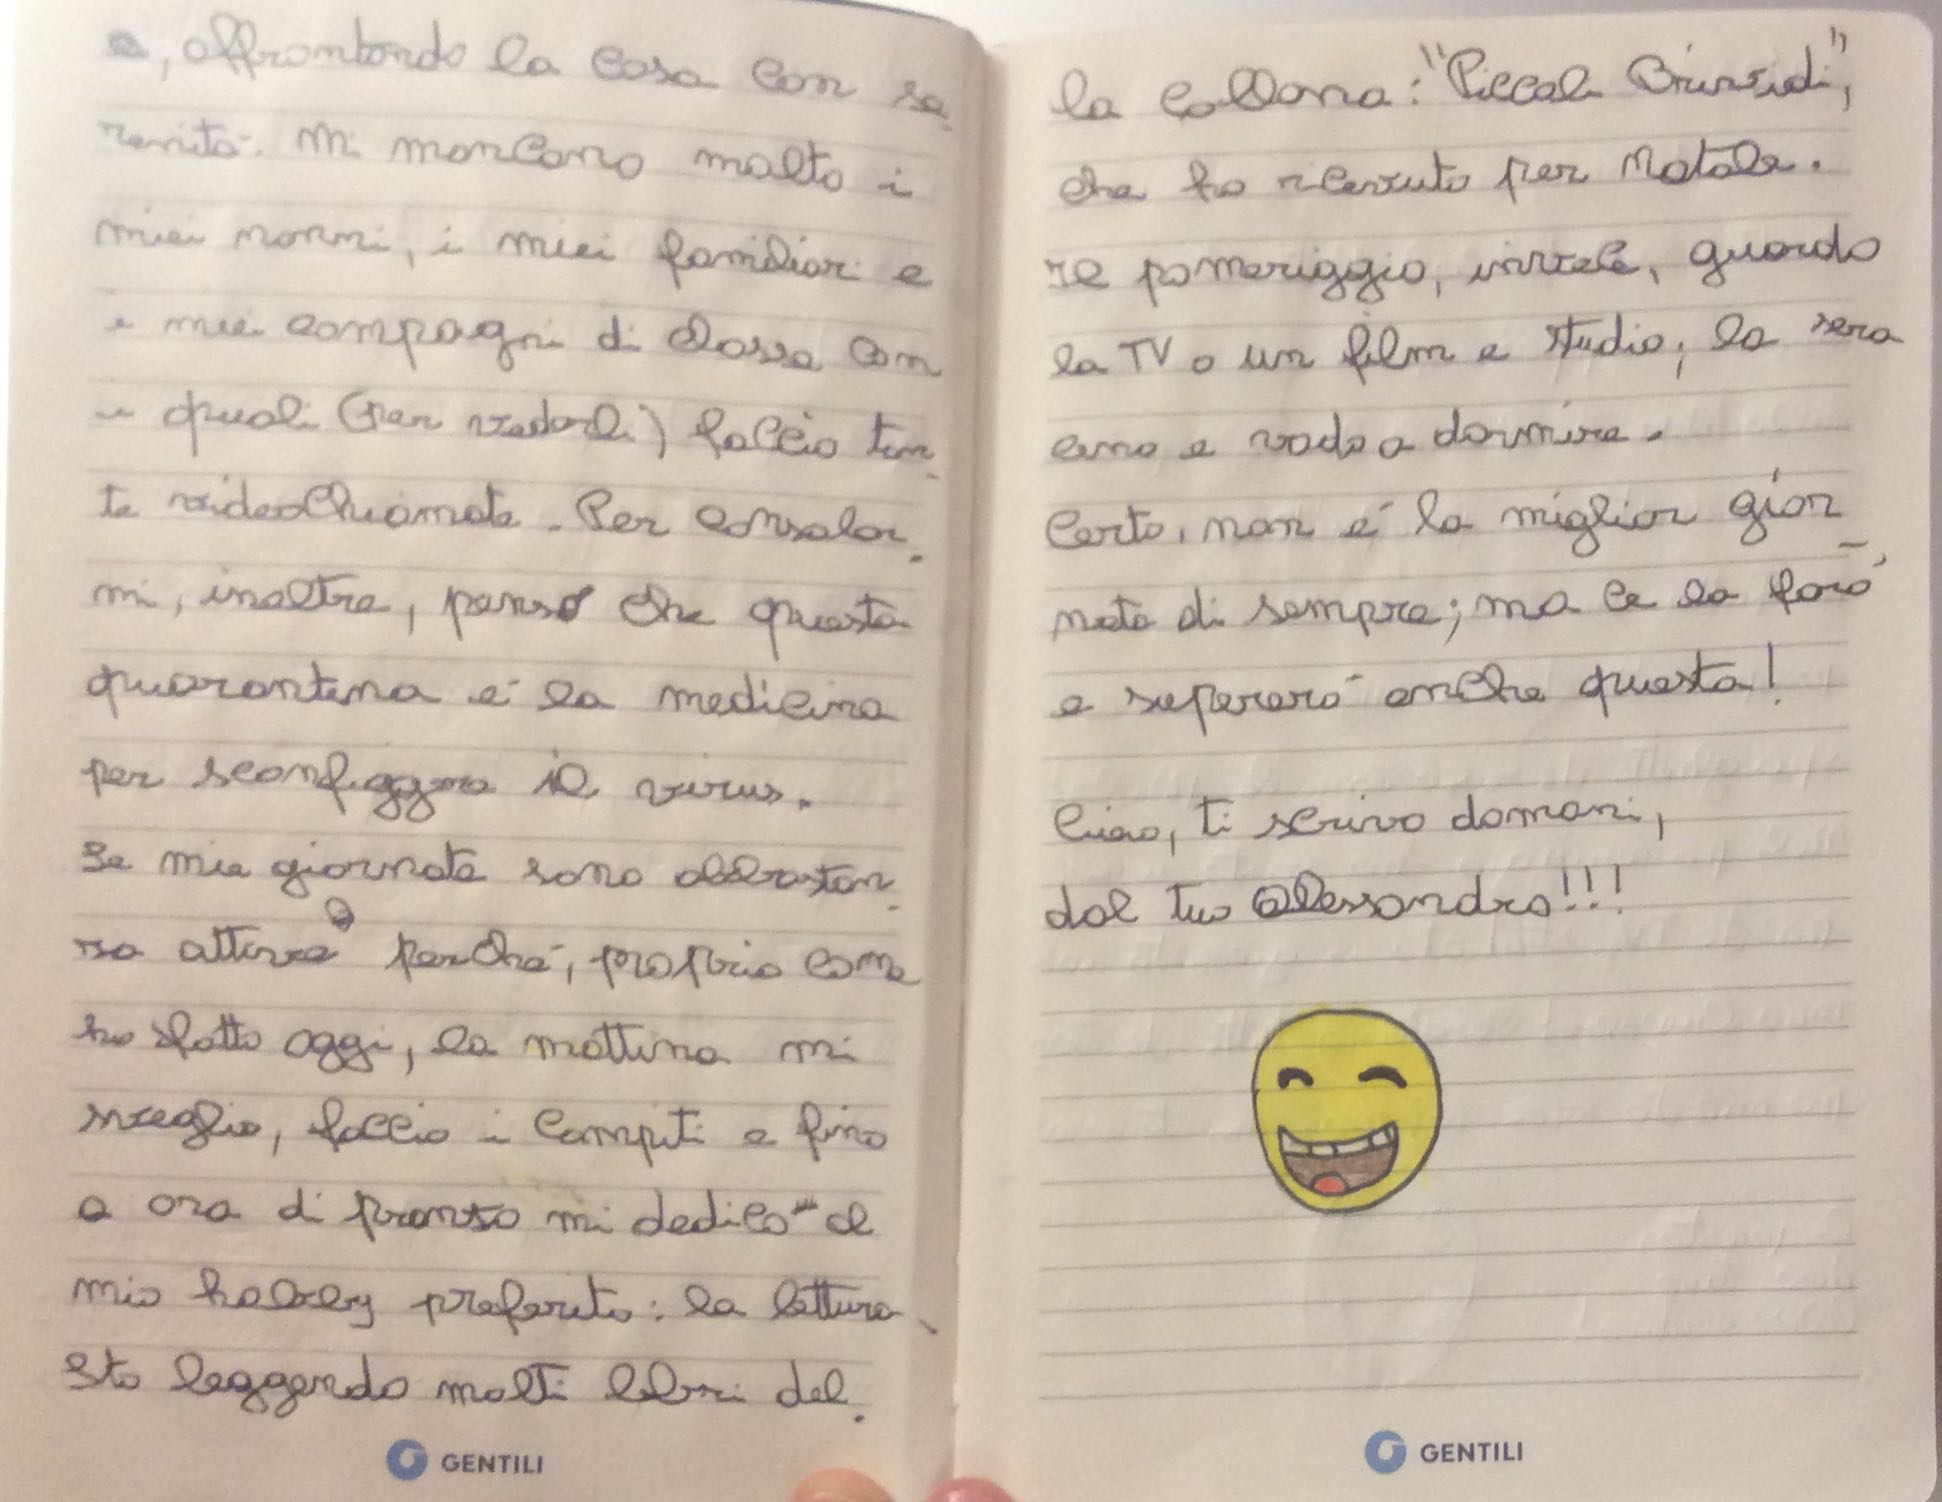 e, affrontando la cosa con se
renità. Mi mancano molto i
miei nonni, i miei familiari e
i miei compagni di classe con
i quali (per vederli) faccio tan
te videochiamate. Per consolar
mi, inoltre, penso che questa
quarantena è la medicina
per sconfiggere il virus.
Le mie giornate sono abbastan
za attive perché, proprio come
ho fatto oggi, la mattina mi
sveglio, faccio i compiti e fino
a ora di pranzo mi dedico al
mio hobby preferito: la lettura.
Sto leggendo molti libri del
la collana: "Piccoli Brividi",
che ho ricevuto per Natale.
Il pomeriggio, invece, guardo
la TV o un film e studio; la sera
ceno e vado a dormire.
Certo, non è la miglior gior
nata di sempre; ma ce la farò
e supererò anche questa!
Ciao, ti scrivo domani,
dal tuo Alessandro!!!
GENTILI
GENTILI